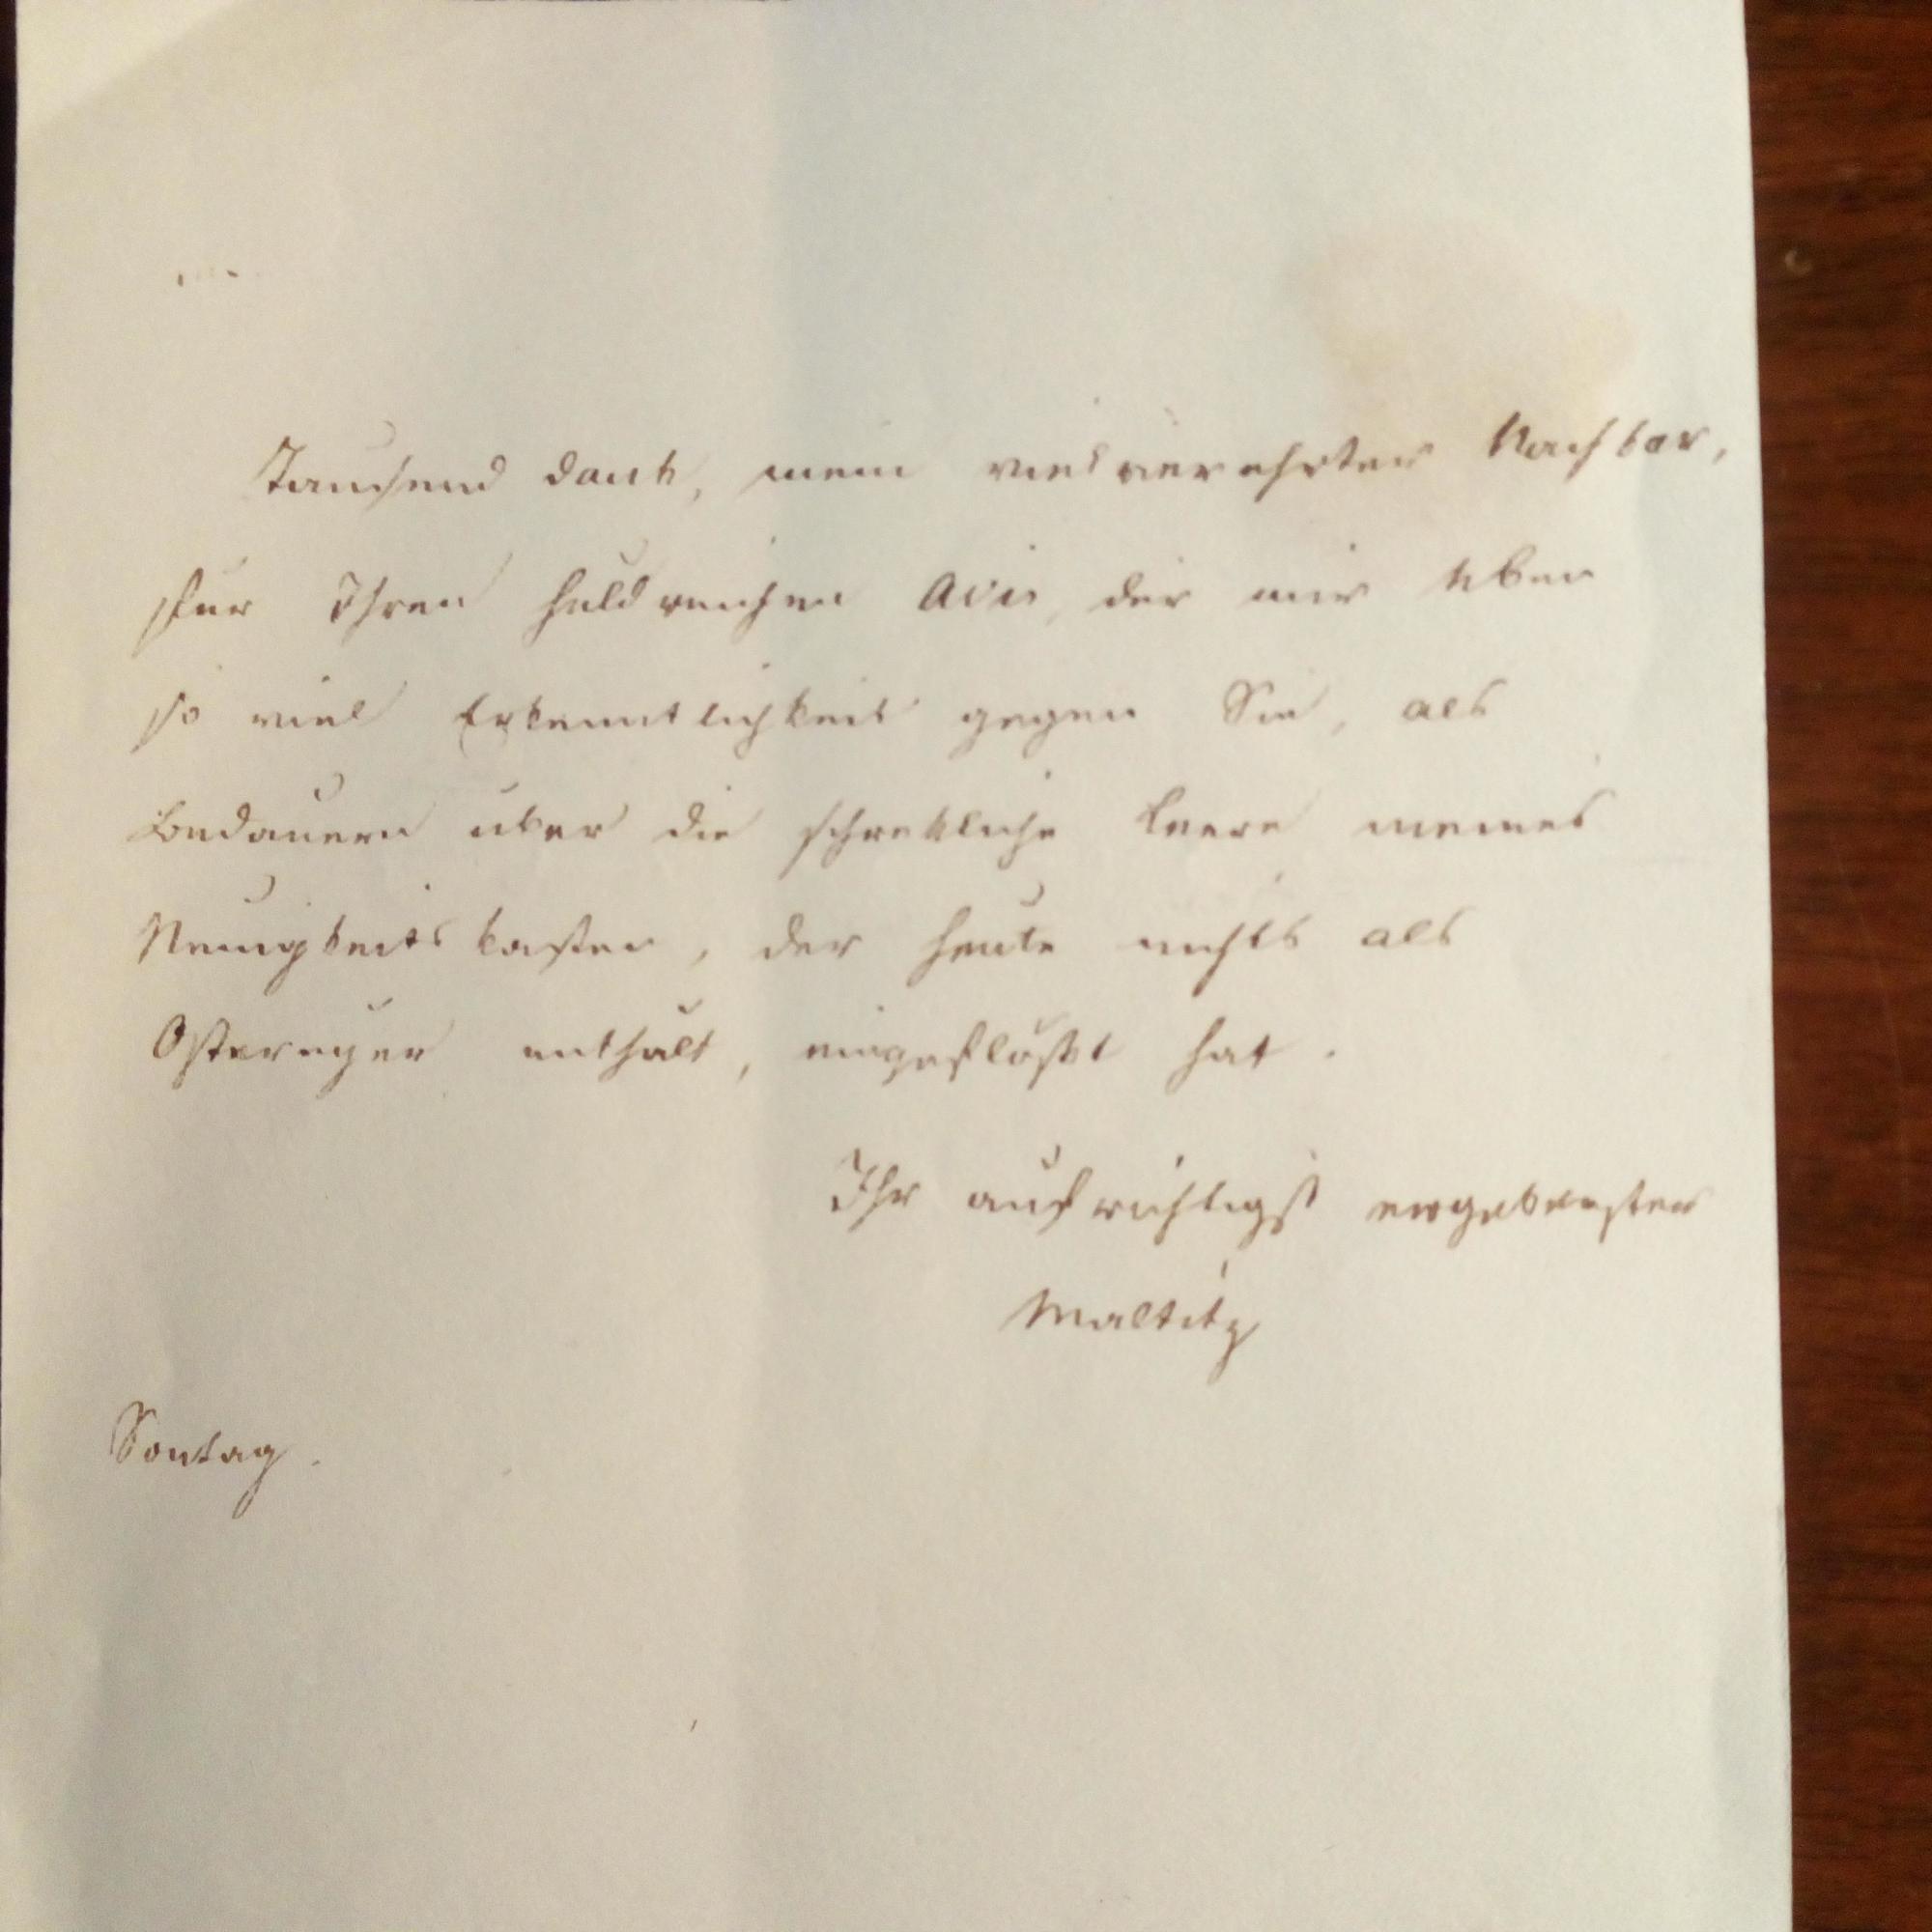 Tausend Dank, mein vielverehrter Nachbar,
für Ihren huldreichen Avis, der mir eben
so viel Erkenntlichkeit gegen Sie, als
Bedauern über die schrekliche Leere meines
Neuigkeitskasten, der heute nichts als
Ostereyer enthält, eingeflößt hat.
Ihr aufrichtigst ergebenster
Maltitz
Sontag.